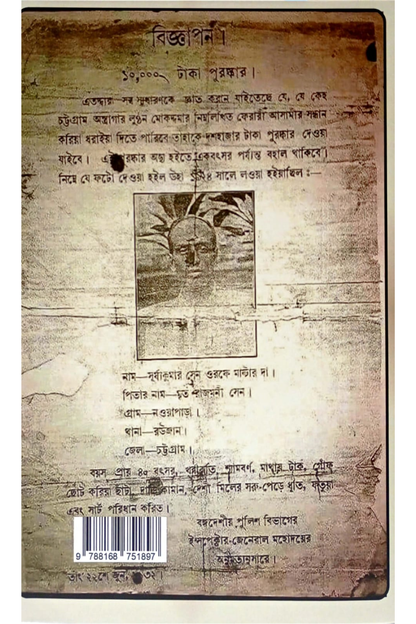 বিজ্ঞাপন।
১০,০০০ টাকা পুরষ্কার।
এতদ্বারা সর্ব সাধারণকে জ্ঞাত করান যাইতেছে যে, যে কেহ
চট্টগ্রাম অস্ত্রাগার লুণ্ঠন মোকদ্দমার নিম্নলিখিত ফেরারী আসামীর সন্ধান
করিয়া ধরাইয়া দিতে পারিবে তাহাকে দশহাজার টাকা পুরস্কার দেওয়া
যাইবে। এই পুরস্কার অদ্য হইতে একবৎসর পর্য্যন্ত বহাল থাকিবে।
নিম্নে যে ফটো দেওয়া হইল উহা সালে লওয়া হইয়াছিল :—
নাম—সূর্য্যকুমার সেন ওরফে মাষ্টার দা।
পিতার নাম—মৃত রাজমনী সেন।
গ্রাম—নওয়াপাড়া।
থানা—রউজান।
জেলা—চট্টগ্রাম।
বয়স প্রায় ৪০ বৎসর, খর্ব্বাকৃতি, শ্যামবর্ণ, মাথায় টাক, গোঁফ
ছোট করিয়া ছাঁটা, দাড়ি কামান, দেশী মিলের সরু-পেড়ে ধুতি, ফতুয়া
এবং সার্ট পরিধান করিত।
বঙ্গদেশীয় পুলিশ বিভাগের
ইন্সপেক্টার-জেনেরাল মহোদয়ের
অনুমত্যনুসারে।
9 788168 751897
তাং ২২শে জুন, ৩২।